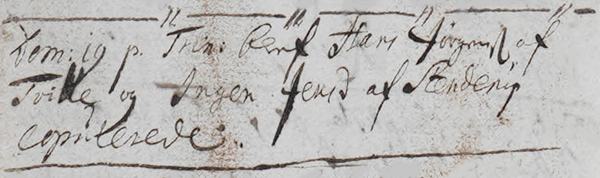 Dom: 19 p. Trin: blef Hans Jørgens: af
Tville og Ingen Jensd af Stenderup
copulerede.